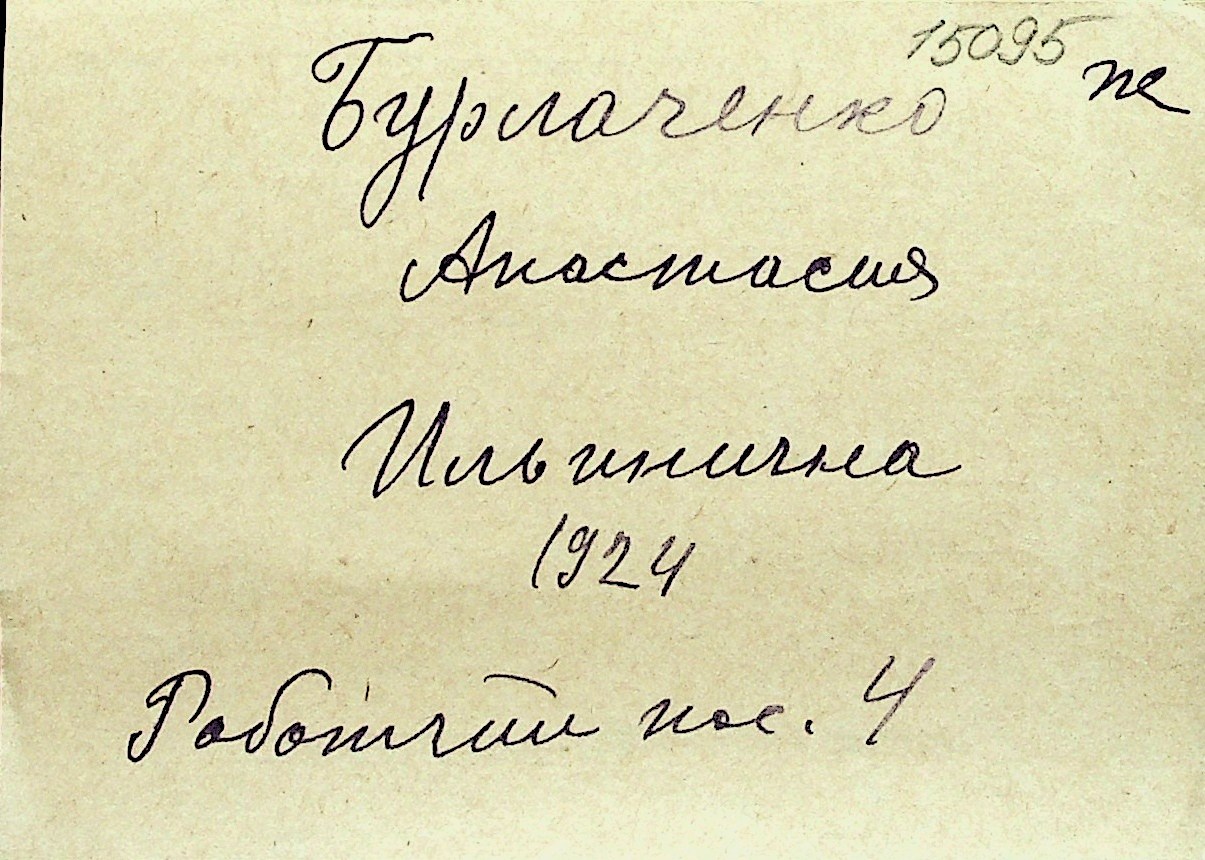 15095 пе
Бурлаченко
Анастасия
Ильинична
1924
Работчий пос. 4